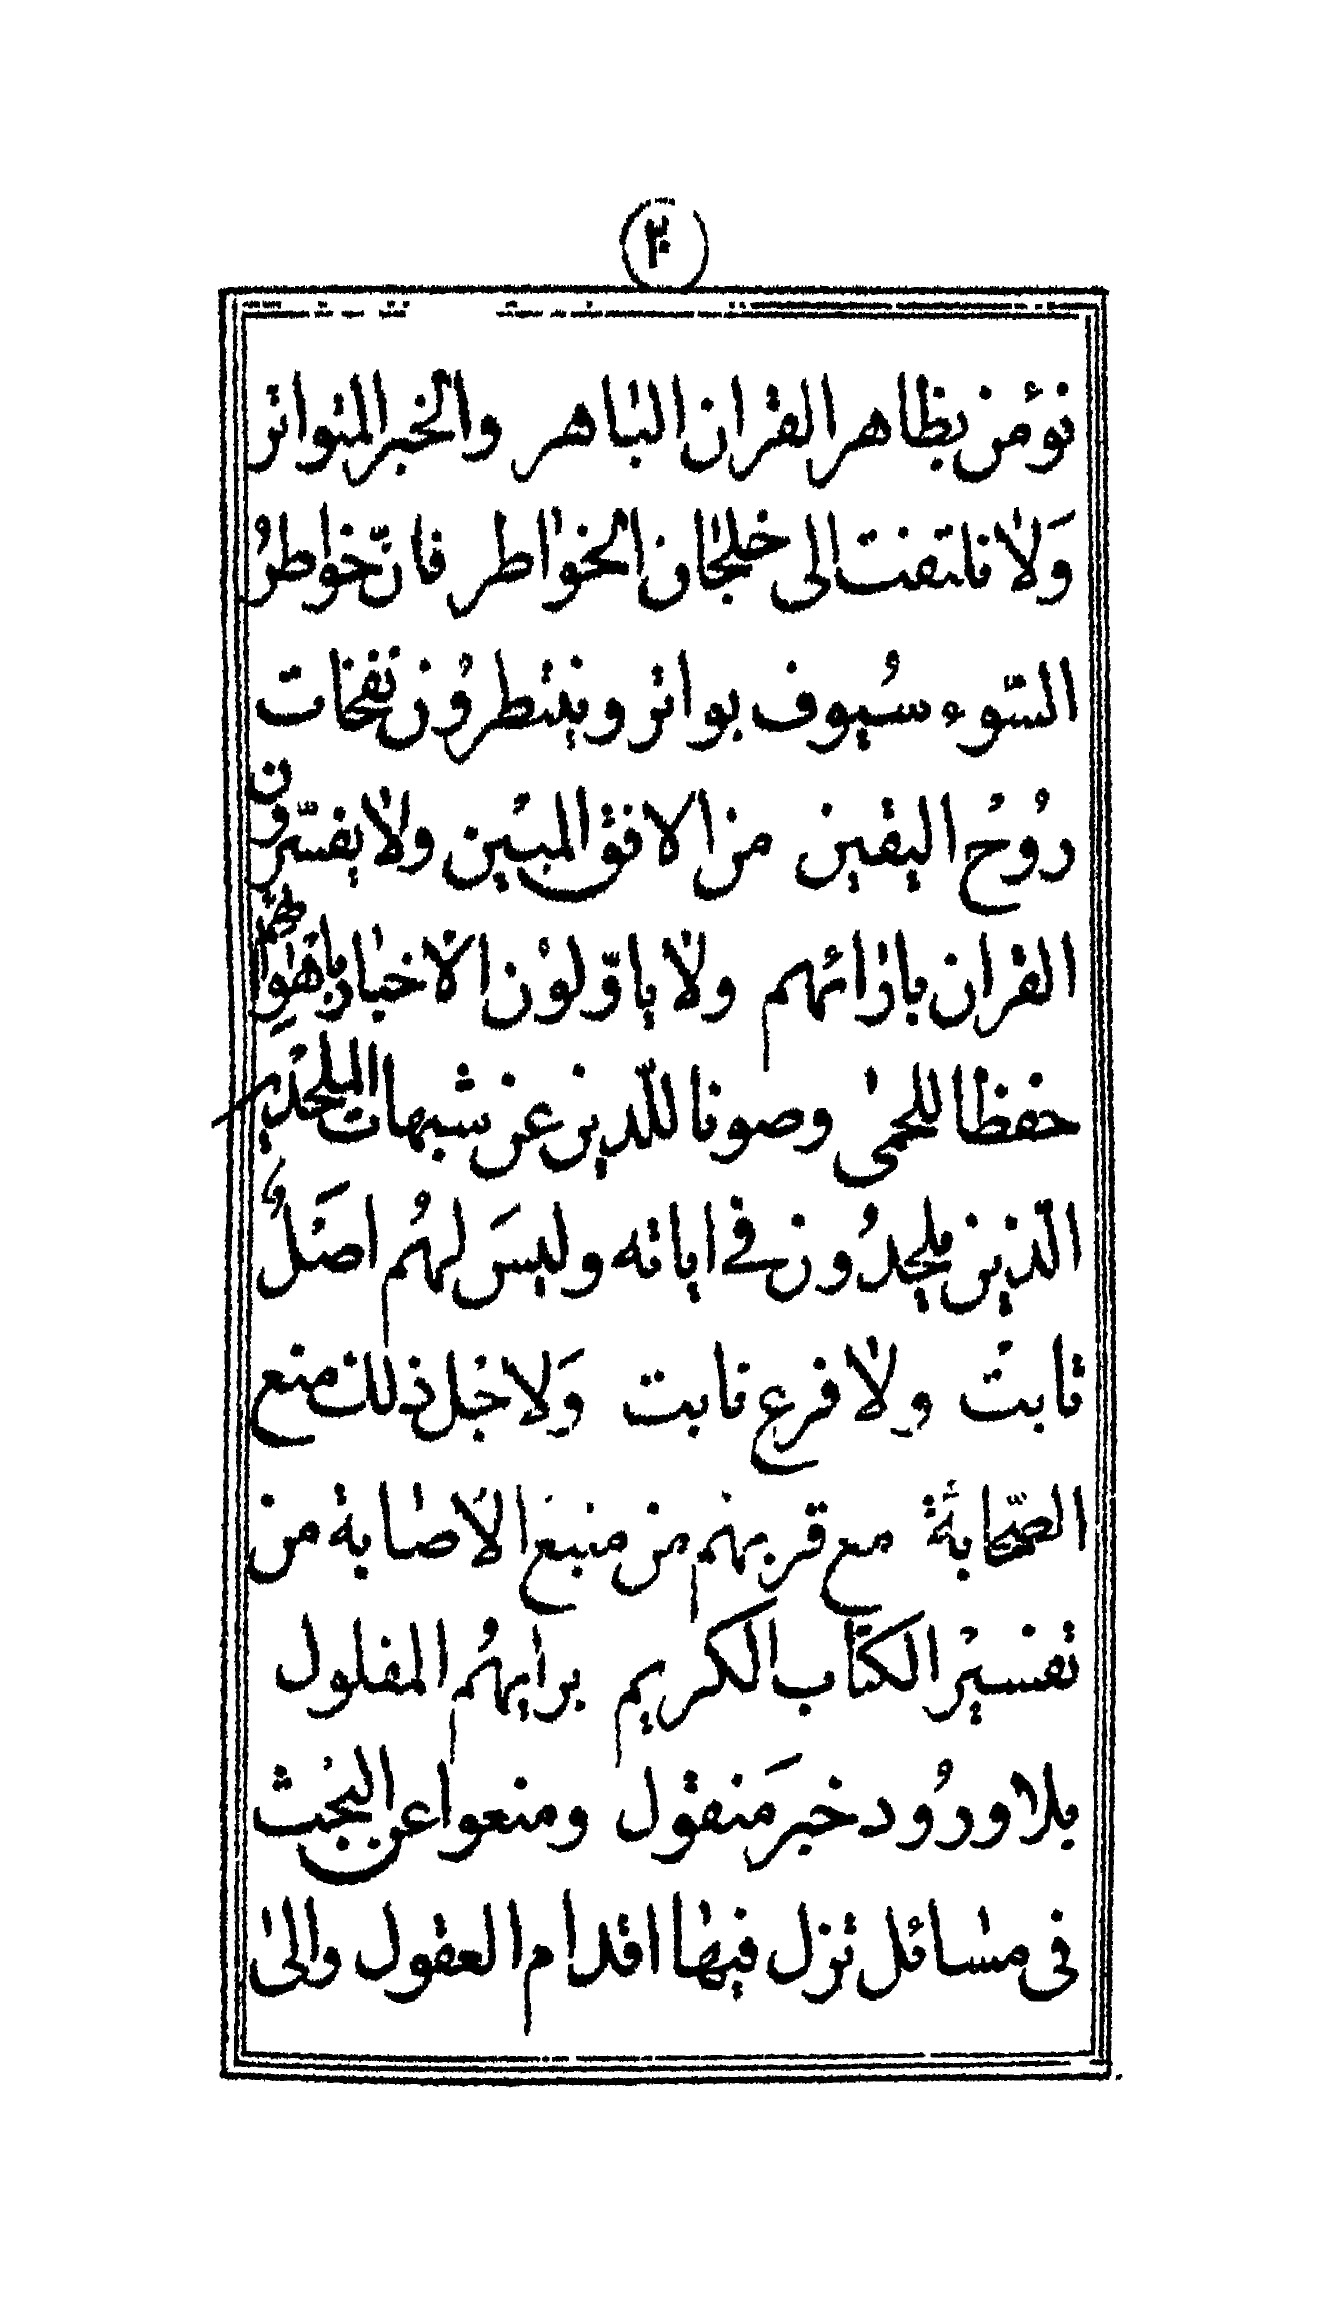 ٢٠
نؤمن بظاهر القران الباهر والخبر المتواتر
وَلا نلتفت الى خلجان الخواطر فانّ خواطرُ
السّوء سُيوف بواتر وينتظرُون نفحات
رُوحُ اليقين من الافق المبُين ولا يفسّرون
القران بارائهم ولا ياوّلون الاخبار باهوائهم
حفظا للحمى وصونا للّدين عن شبهات الملحدين
الّذين يلحدُون في اياته وليسَ لهُم اصَلُ
ثابتْ ولا فرع نابت وَلاجل ذلك منع
الصّحابة مع قربهم من منبع الاصابة من
تفسير الكتاب الكريم برايهُم المفلول
بلا ورُود خبر مَنقول ومنعوا عن البحث
فى مسائل تزل فيها اقدام العقول والى